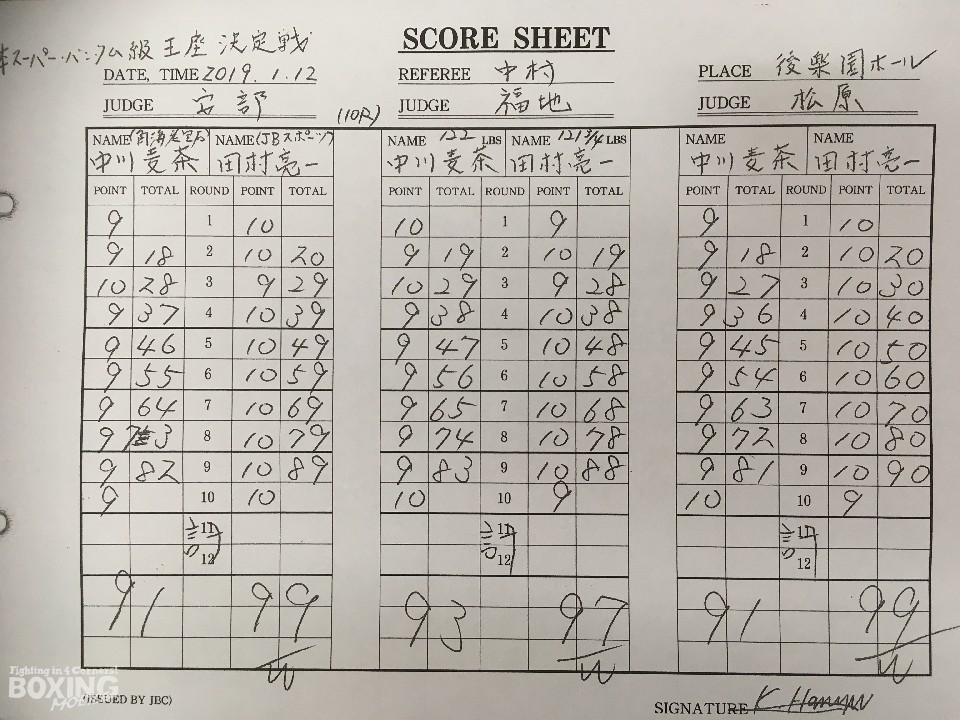 スーパー・バンタム級王座決定戦
SCORE SHEET
DATE, TIME 2019. 1. 12
REFEREE 中村
PLACE 後楽園ホール
JUDGE 宮部
(10R)
JUDGE 福地
JUDGE 松原
NAME (角海老宝石) NAME (JBスポーツ) NAME 122 LBS NAME 121 3/4 LBS NAME NAME
中川麦茶 田村亮一 中川麦茶 田村亮一 中川麦茶 田村亮一
POINT TOTAL ROUND POINT TOTAL POINT TOTAL ROUND POINT TOTAL POINT TOTAL ROUND POINT TOTAL
9 1 10 10 1 9 9 1 10
9 18 2 10 20 9 19 2 10 19 9 18 2 10 20
10 28 3 9 29 10 29 3 9 28 9 27 3 10 30
9 37 4 10 39 9 38 4 10 38 9 36 4 10 40
9 46 5 10 49 9 47 5 10 48 9 45 5 10 50
9 55 6 10 59 9 56 6 10 58 9 54 6 10 60
9 64 7 10 69 9 65 7 10 68 9 63 7 10 70
9 73 8 10 79 9 74 8 10 78 9 72 8 10 80
9 82 9 10 89 9 83 9 10 88 9 81 9 10 90
9 10 10 10 10 9 10 10 9
11 11 11
12 12 12
91 99 93 97 91 99
W W W
Fighting in 4 Corners!
BOXING
MOBILE
(ISSUED BY JBC)
SIGNATURE K.